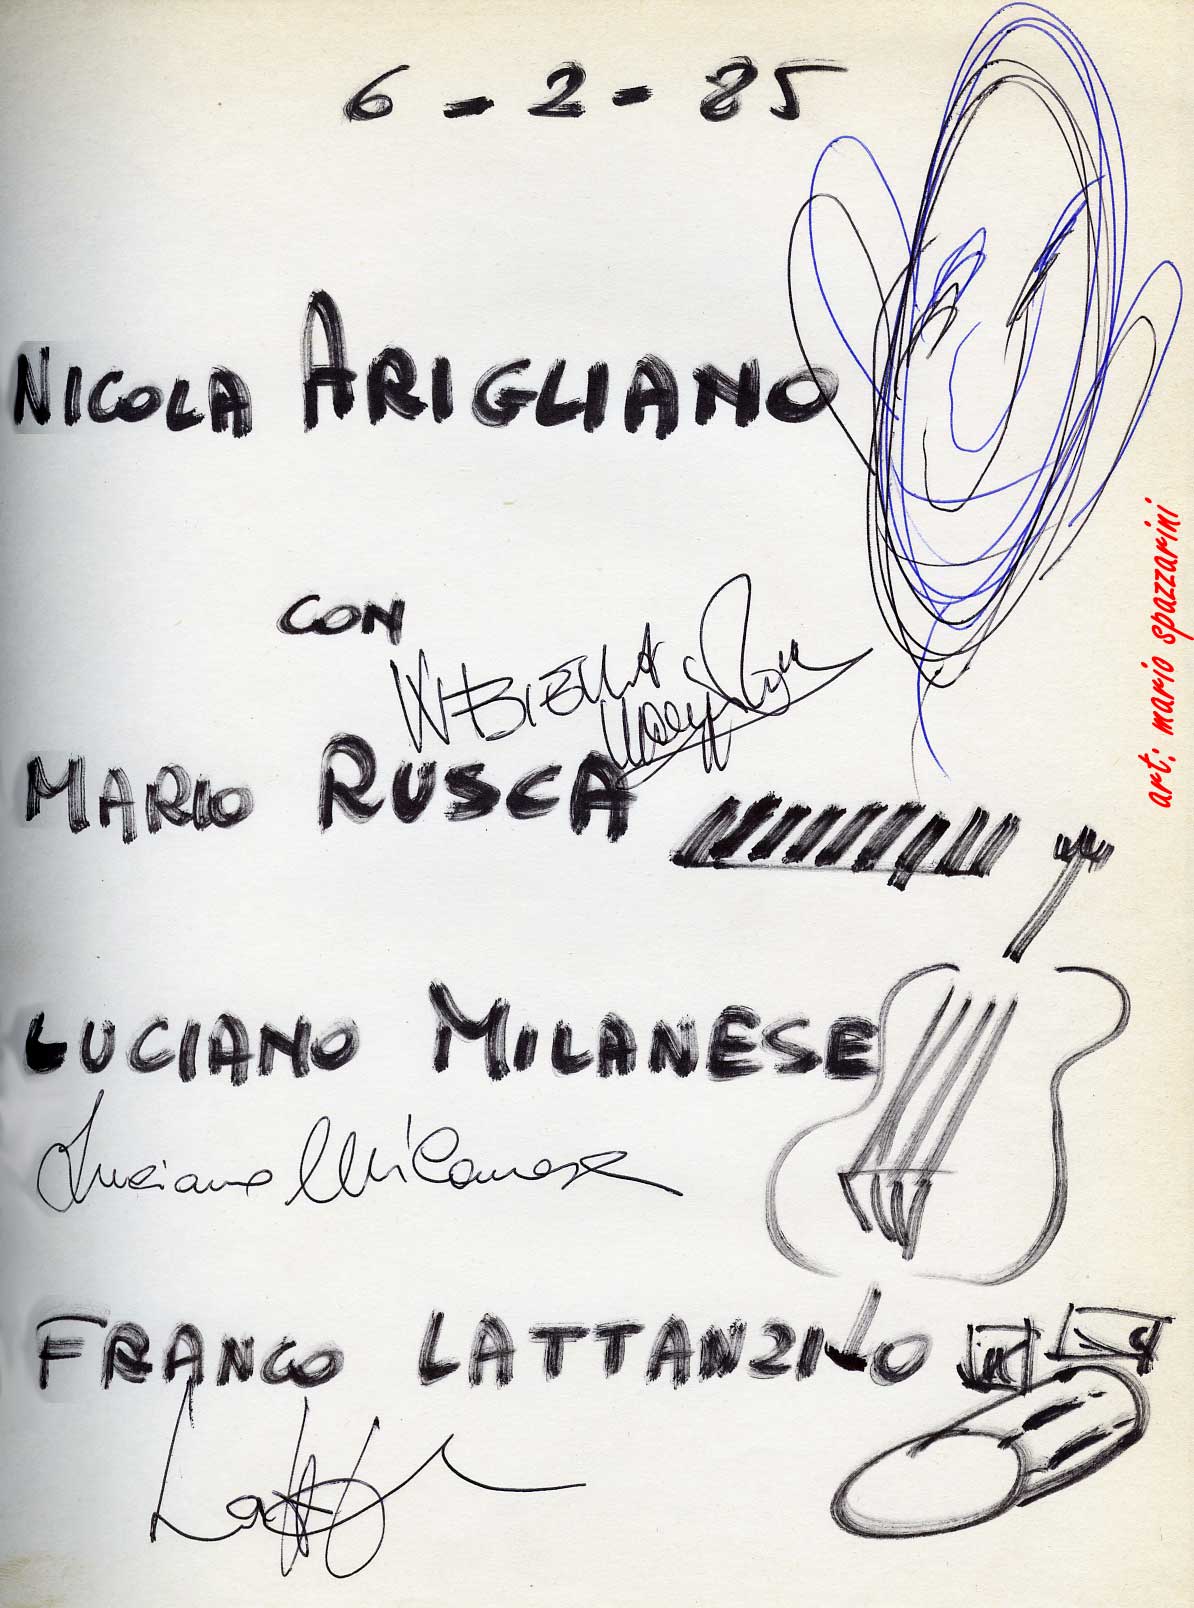 6 - 2 - 85
NICOLA ARIGLIANO
CON
W BIELLA
MARIO RUSCA
LUCIANO MILANESE
Luciano Milanese
FRANCO LATTANZIO
art: mario spazzarini